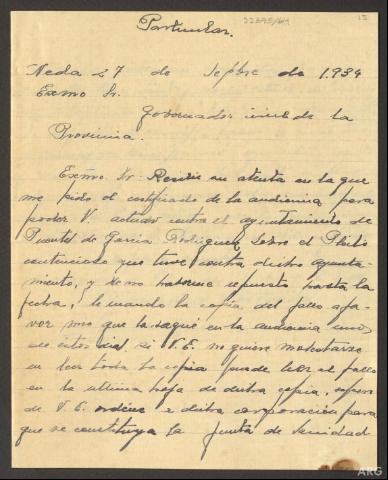 Particular.
22895/44
13
Neda 27 de Sepbre de 1.934
Exmo Sr.
Gobernador civil de la
Provincia.
Exmo. Sr. Recibí su atenta en la que
me pide el certificado de la audiencia para
poder V. actuar contra el ayuntamiento de
Puentes de Garcia Rodriguez sobre el Pleito
contencioso que tuve contra dicho ayunta-
miento, y no haberme repuesto hasta la
fecha, le mando la copia del fallo a fa-
vor mio que la saqué en la audiencia uno
de estos dias si V.E. no quiere molestarse
en leer toda la copia puede leer el fallo
en la ultima hoja de dicha copia, espero
de V.E. ordene a dicha corporación para
que se constituya la junta de Sanidad
ARG